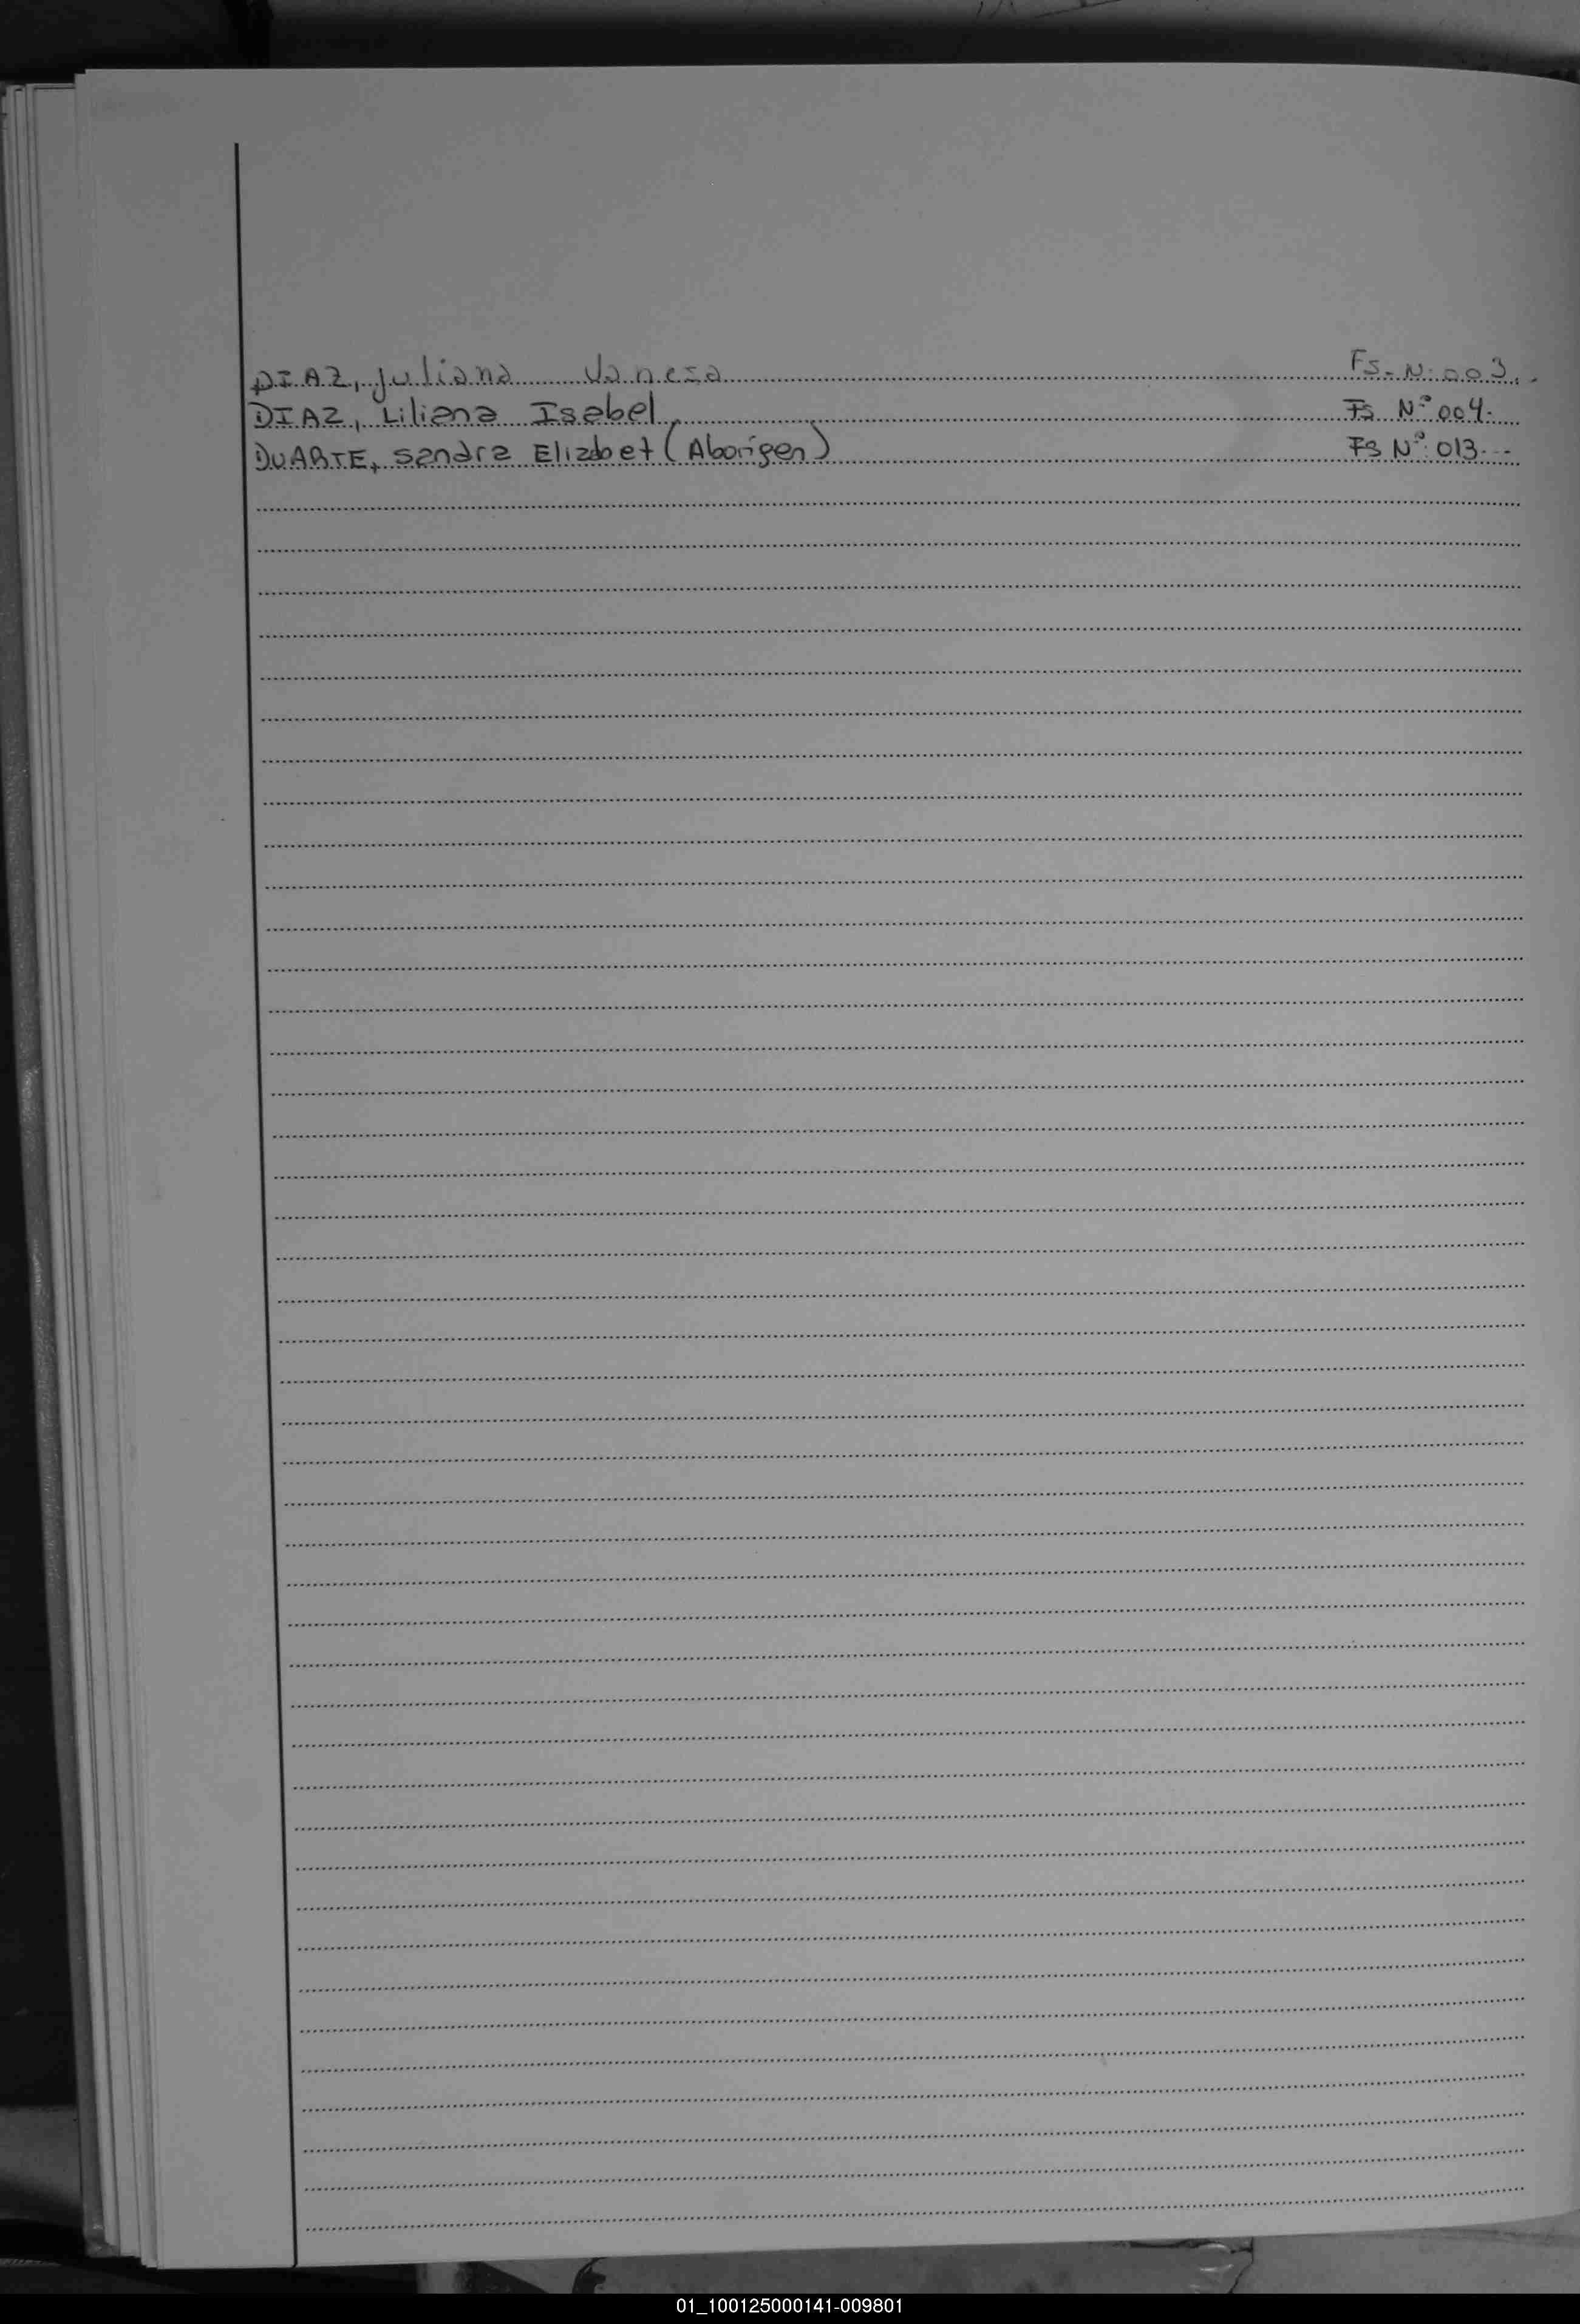 DIAZ, juliana Vanesa FS. N. 003.
DIAZ, Liliana Isabel FS Nº 004.
DUARTE, Sandra Elizabet (Aborígen) FS Nº 013.--
01_100125000141-009801